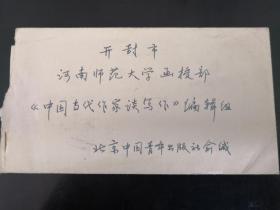 开封市
河南师范大学函授部
《中国当代作家谈写作》编辑组
北京中国青年出版社俞缄